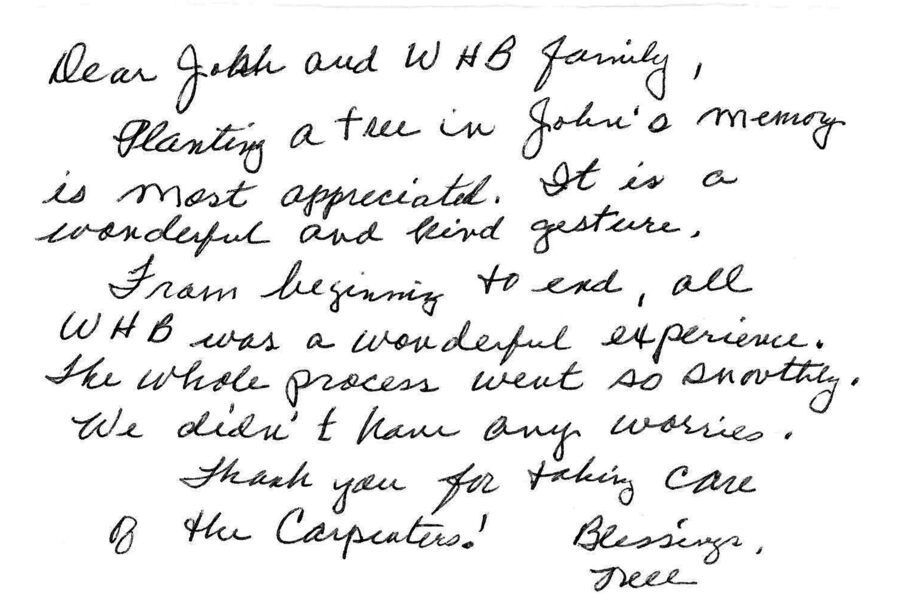 Dear Josh and WHB family,
Planting a tree in John's memory
is most appreciated. It is a
wonderful and kind gesture.
From beginning to end, all
WHB was a wonderful experience.
The whole process went so smoothly.
We didn't have any worries.
Thank you for taking care
of the Carpenters!
Blessings,